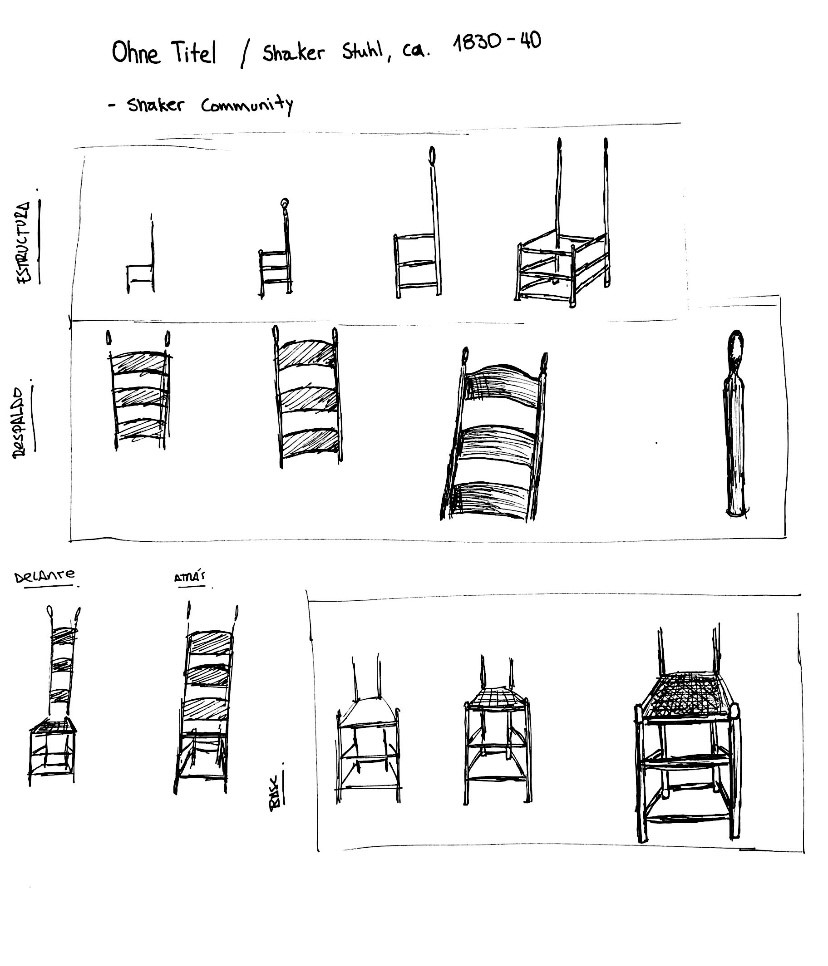 Ohne Titel / Shaker Stuhl, ca. 1830-40
- Shaker Community
ESTRUCTURA.
RESPALDO.
DELANTE.
ATRÁS.
BASE.